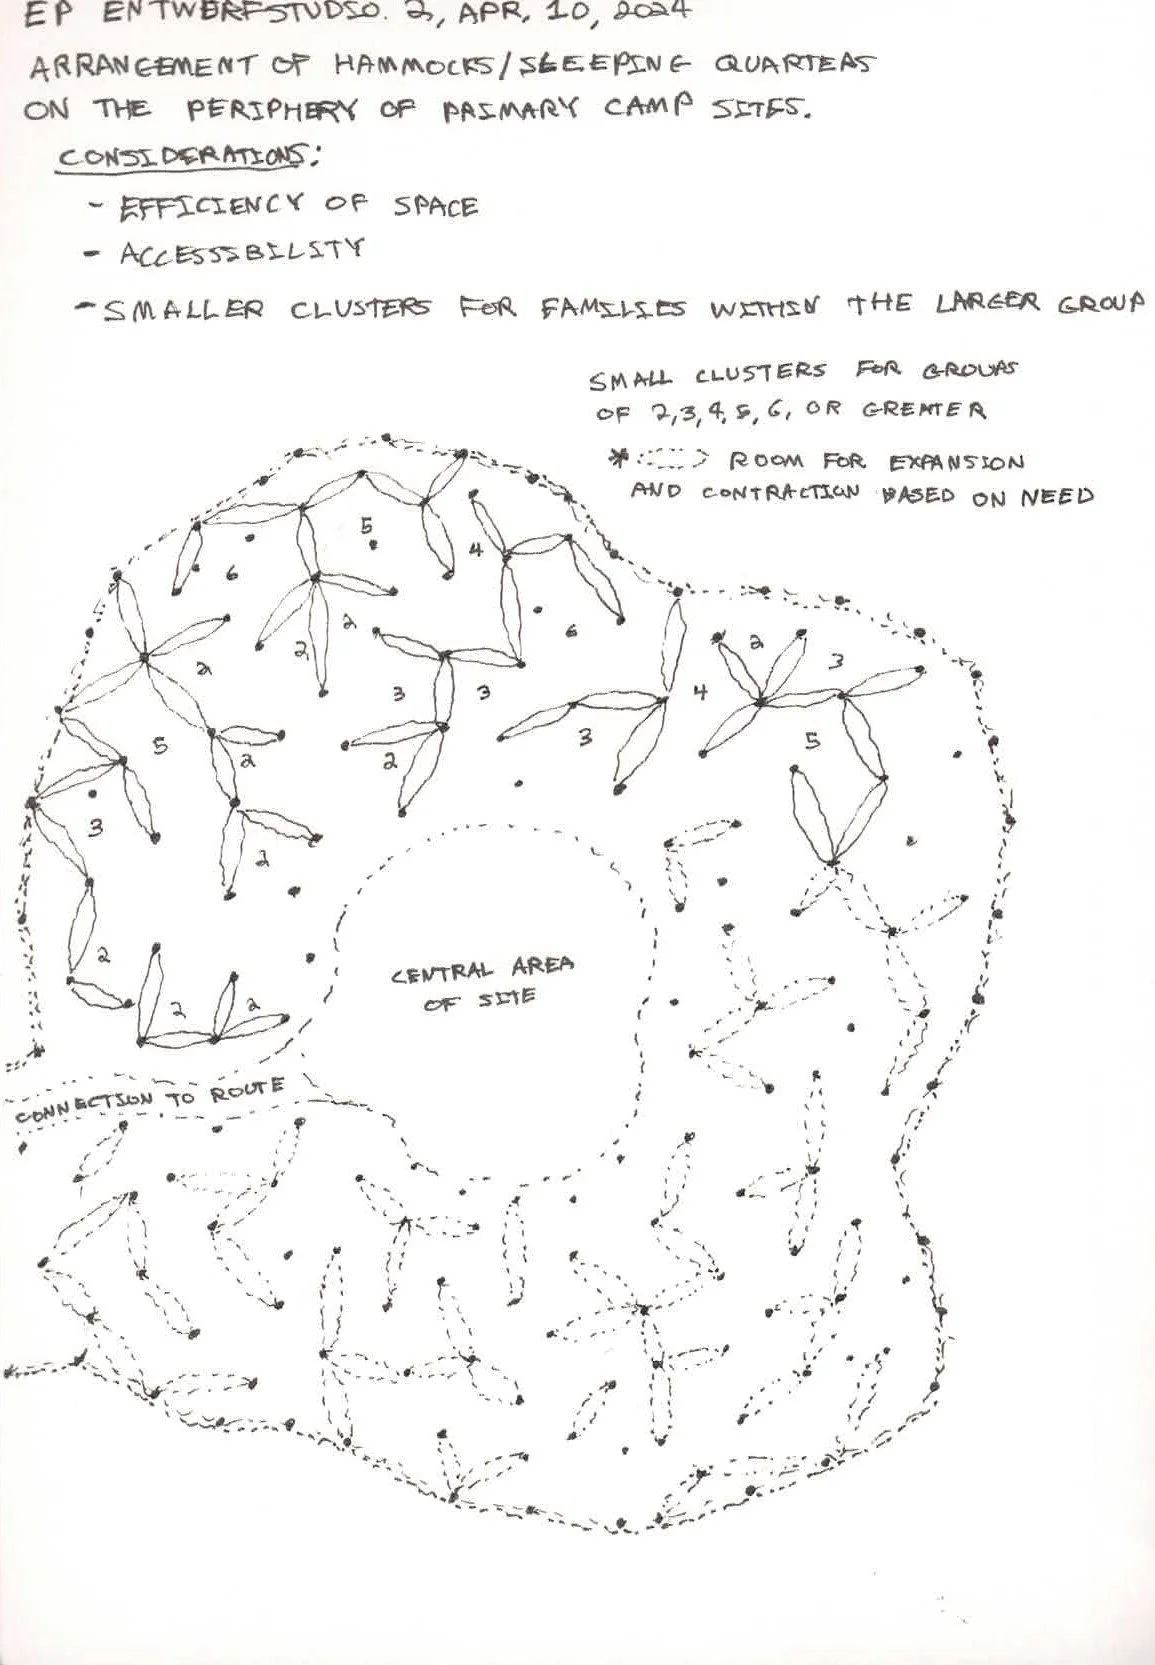 EP ENTWERFSTUDIO. 2, APR, 10, 2024
ARRANGEMENT OF HAMMOCKS/SLEEPING QUARTERS
ON THE PERIPHERY OF PRIMARY CAMP SITES.
CONSIDERATIONS:
- EFFICIENCY OF SPACE
- ACCESSIBILITY
- SMALLER CLUSTERS FOR FAMILIES WITHIN THE LARGER GROUP
SMALL CLUSTERS FOR GROUPS
OF 2,3,4,5,6, OR GREATER
* ROOM FOR EXPANSION
AND CONTRACTION BASED ON NEED
5
4
6
2
6
2
2
2
3
3
4
3
3
5
2
2
5
2
3
2
2
CENTRAL AREA
OF SITE
2
2
CONNECTION TO ROUTE